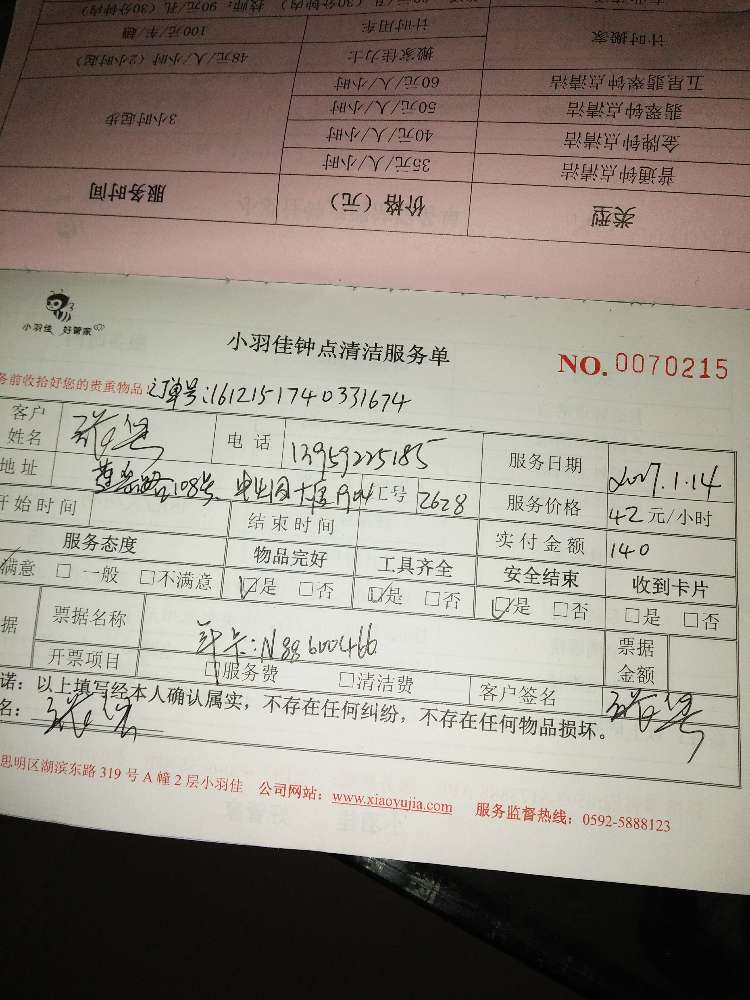 专业清洗 90元/孔（30分钟内） 技师：90元/孔（30分钟内）
计时搬家 计时用车 100元/车·趟
搬家佳力士 48元/人/小时（2小时起）
五星翡翠钟点清洁 60元/人/小时 3小时起步
翡翠钟点清洁 50元/人/小时
金牌钟点清洁 40元/人/小时
普通钟点清洁 35元/人/小时
类型 价格（元） 服务时间
小羽佳 好管家
小羽佳钟点清洁服务单
NO. 0070215
务前收拾好您的贵重物品 订单号:1612151740331674
客户姓名 电话 13959225185 服务日期 2017.1.14
地址 108号 汇号 2628 服务价格 42元/小时
开始时间 结束时间 实付金额 140
服务态度 物品完好 工具齐全 安全结束 收到卡片
满意 □一般 □不满意 ☑是 □否 ☑是 □否 ☑是 □否 □是 □否
据 票据名称 年卡:N88600466 票据金额
开票项目 □服务费 □清洁费 客户签名
诺：以上填写经本人确认属实，不存在任何纠纷，不存在任何物品损坏。
名：
思明区湖滨东路319号A幢2层小羽佳 公司网站：www.xiaoyujia.com 服务监督热线：0592-5888123